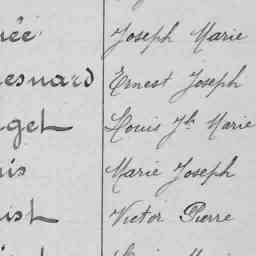 née Joseph Marie
esnard Ernest Joseph
get Louis Jh Marie
is Marie Joseph
ist Victor Pierre